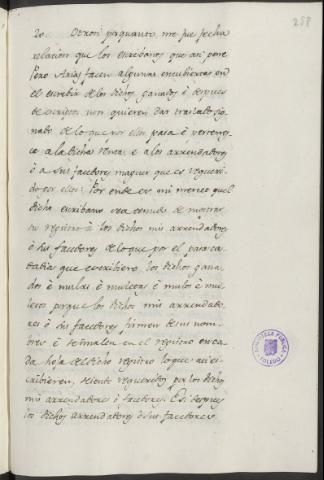 258
20. Otrosi porquanto me fue fecha
relacion que los escribanos que asi pone
Pero Arias facen algunas encubiertas en
el escrebir de los dichos ganados é despues
de escriptos, non quieren dar traslado sig-
nado de lo que por ellos pasa é pertenes-
ce a la dicha renta, e a los arrendadores
ó a sus facetores maguer que es requeri-
do por ellos: Por ende es mi merced quel
dicho escribano sea tenudo de mostrar
su registro á los dichos mis arrendadores
ó sus facetores de lo que por el pasa ca-
da dia que escribiere los dichos gana-
dos é mulas é muletas é mulos é mu-
letos porque los dichos mis arrendado-
res ó sus facetores firmen de sus nom-
bres é señalen en el registro en ca-
da hoja del dicho registro lo que asi es-
cribieren, seiendo requeridos por los dichos
mis arrendadores ó facetores. E si despues
los dichos arrendadores ó sus facetores
BIBLIOTECA PUBLICA
TOLEDO